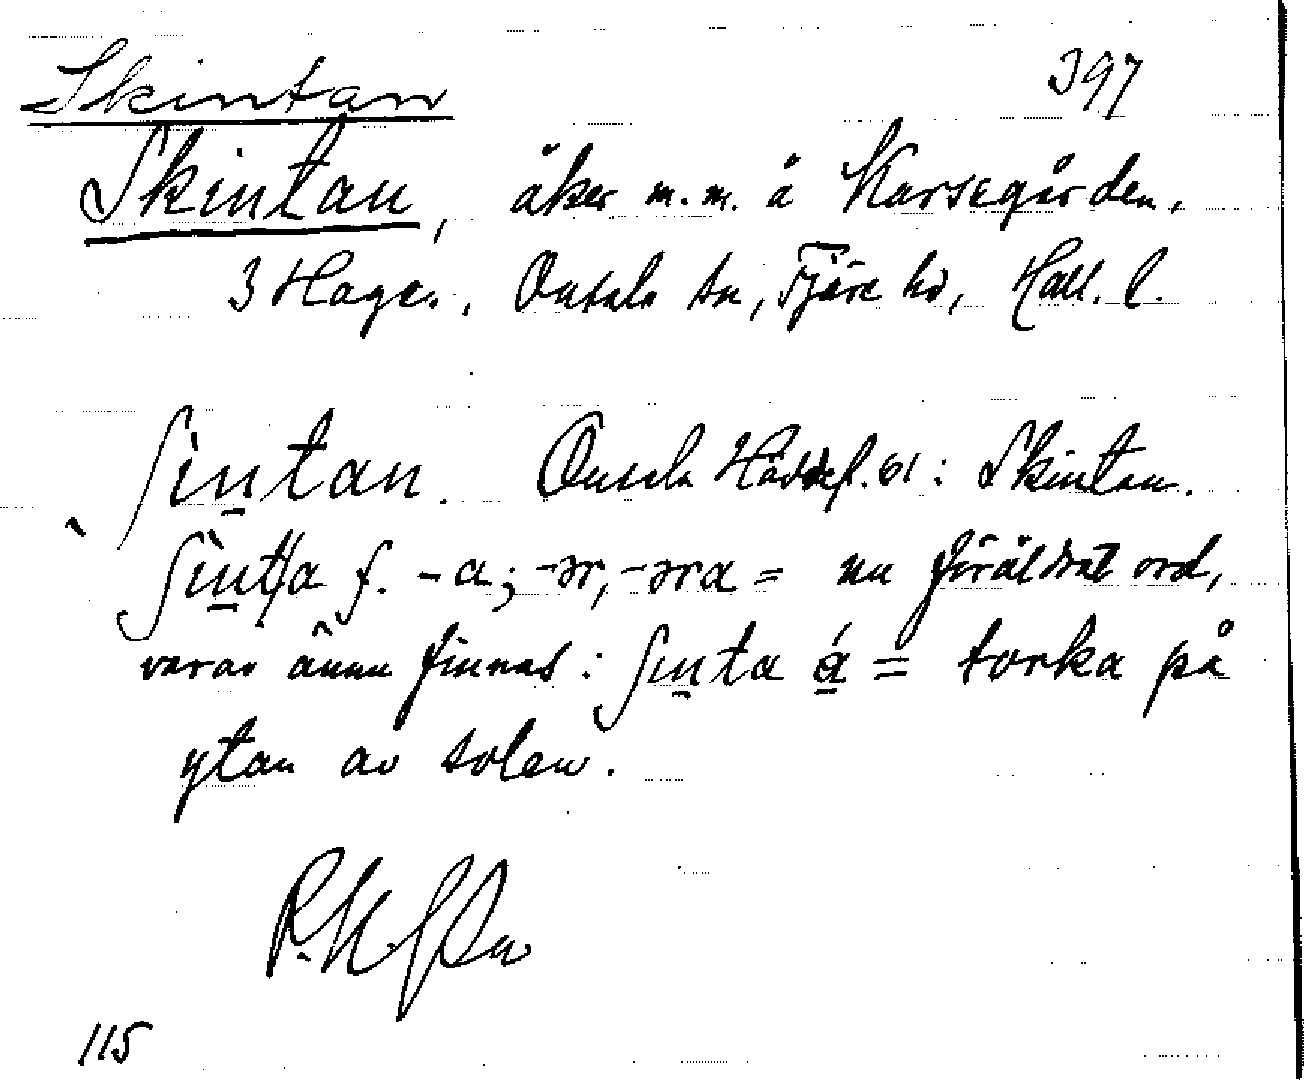 Skintan 397
Skintan, åker m.m. å Karsegården,
3 Hagen, Onsala sn, Fjäre hd, Hall. l.
ʃìn̠tan. Onsala Hd. 61: Skintan.
ʃìn̠ta f. -a; -ər, -əra = nu föråldrat ord,
varav ännu finnes: ʃin̠ta á̠ = torka på
ytan av solen.
115